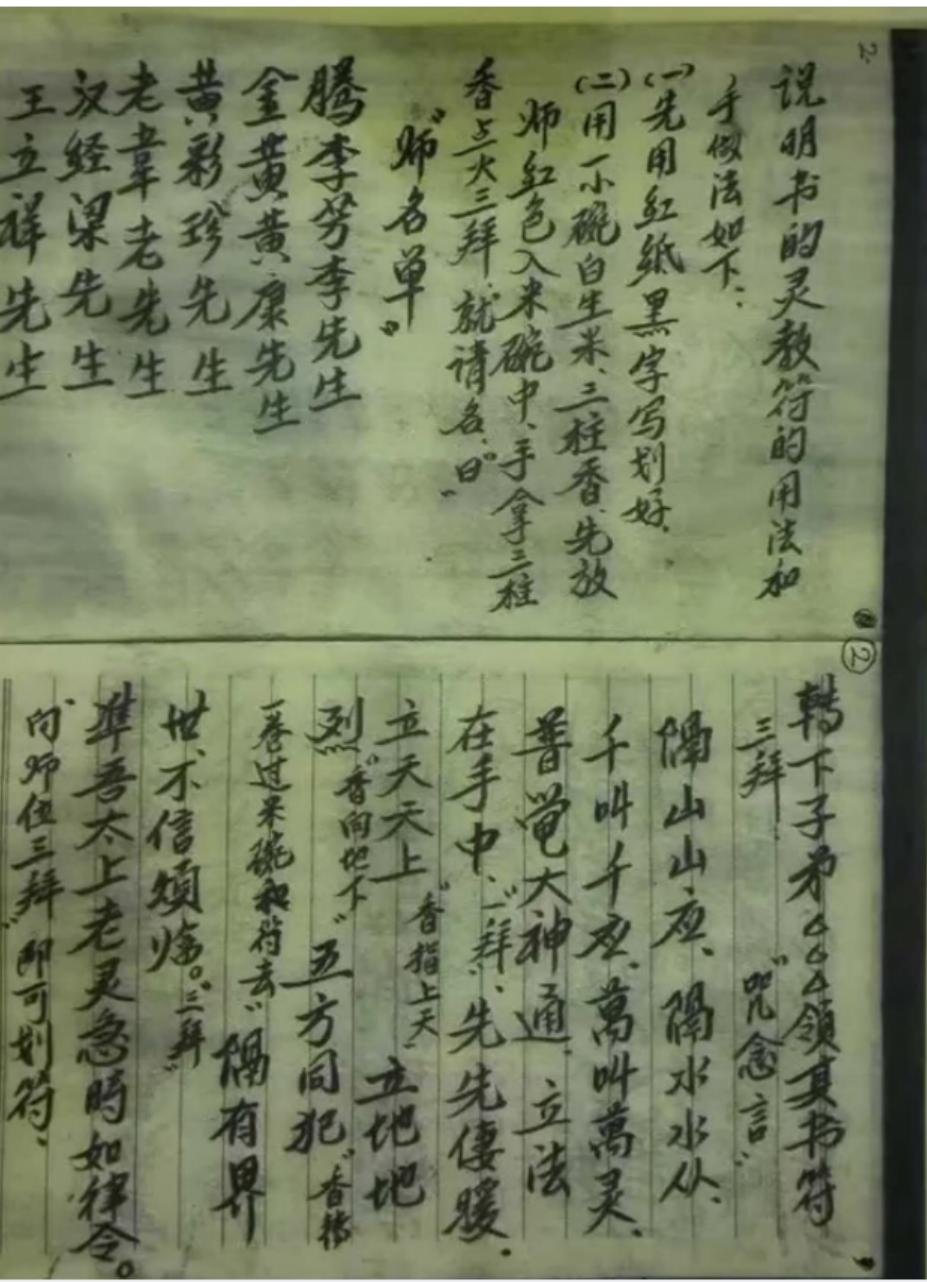 2.
说明书的灵教符的用法和
手做法如下：
(一)先用红纸黑字写划好.
(二)用一小碗白生米、三柱香、先放
师红色入米碗中、手拿三柱
香点火三拜、就请名、"曰"
"师名单"
腾李芳李先生
金黄黄康先生
黄彩珍先生
老韋老先生
汉经梁先生
王立祥先生
②
轉下子弟△△△領其书符
三拜. "咒念言"
隔山山应、隔水水从、
千叫千应、萬叫萬灵.
普奄大神通、立法
在手中、"一拜"、先先
立天天上"香指上天"立地地
烈"香向地下"五方同犯"香
一卷过米碗和符去"隔有界
世、不信須临。"三拜"
準吾太上老灵急時如律令。
向师位三拜"即可划符、